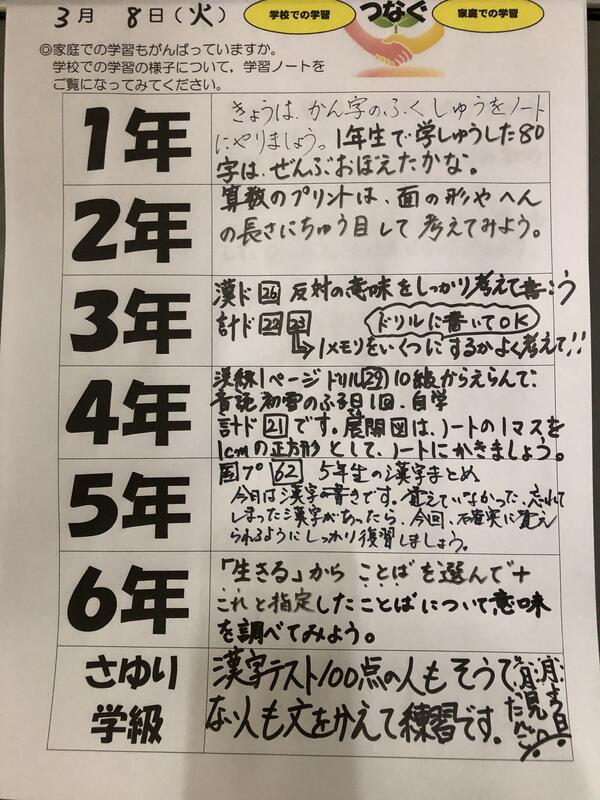 3月 8日(火)
学校での学習
つなぐ
家庭での学習
◎家庭での学習もがんばっていますか。
学校での学習の様子について,学習ノートを
ご覧になってみてください。
1年
きょうは、かん字のふくしゅうをノート
にやりましょう。1年生で学しゅうした80
字は、ぜんぶおぼえたかな。
2年
算数のプリントは、面の形やへん
の長さにちゅう目して考えてみよう。
3年
漢ド26 反対の意味をしっかり考えて書こう
計ド22 23 ドリルに書いてOK
→1メモリをいくつにするかよく考えて!!
4年
漢練1ページ ドリル29 10級からえらんで、
音読 初雪のふる日1回、自学
計ド21です。展開図は、ノートの1マスを
1cmの正方形として、ノートにかきましょう。
5年
国プ62 5年生の漢字まとめ
今日は漢字の書きです。覚えていなかった、忘れて
しまった漢字があったら、今回、確実に覚え
られるようにしっかり復習しましょう。
6年
「生きる」から ことばを選んで+
これと指定したことばについて意味
を調べてみよう。
さゆり
学級
漢字テスト100点の人もそうで
ない人も文をかえて練習です。